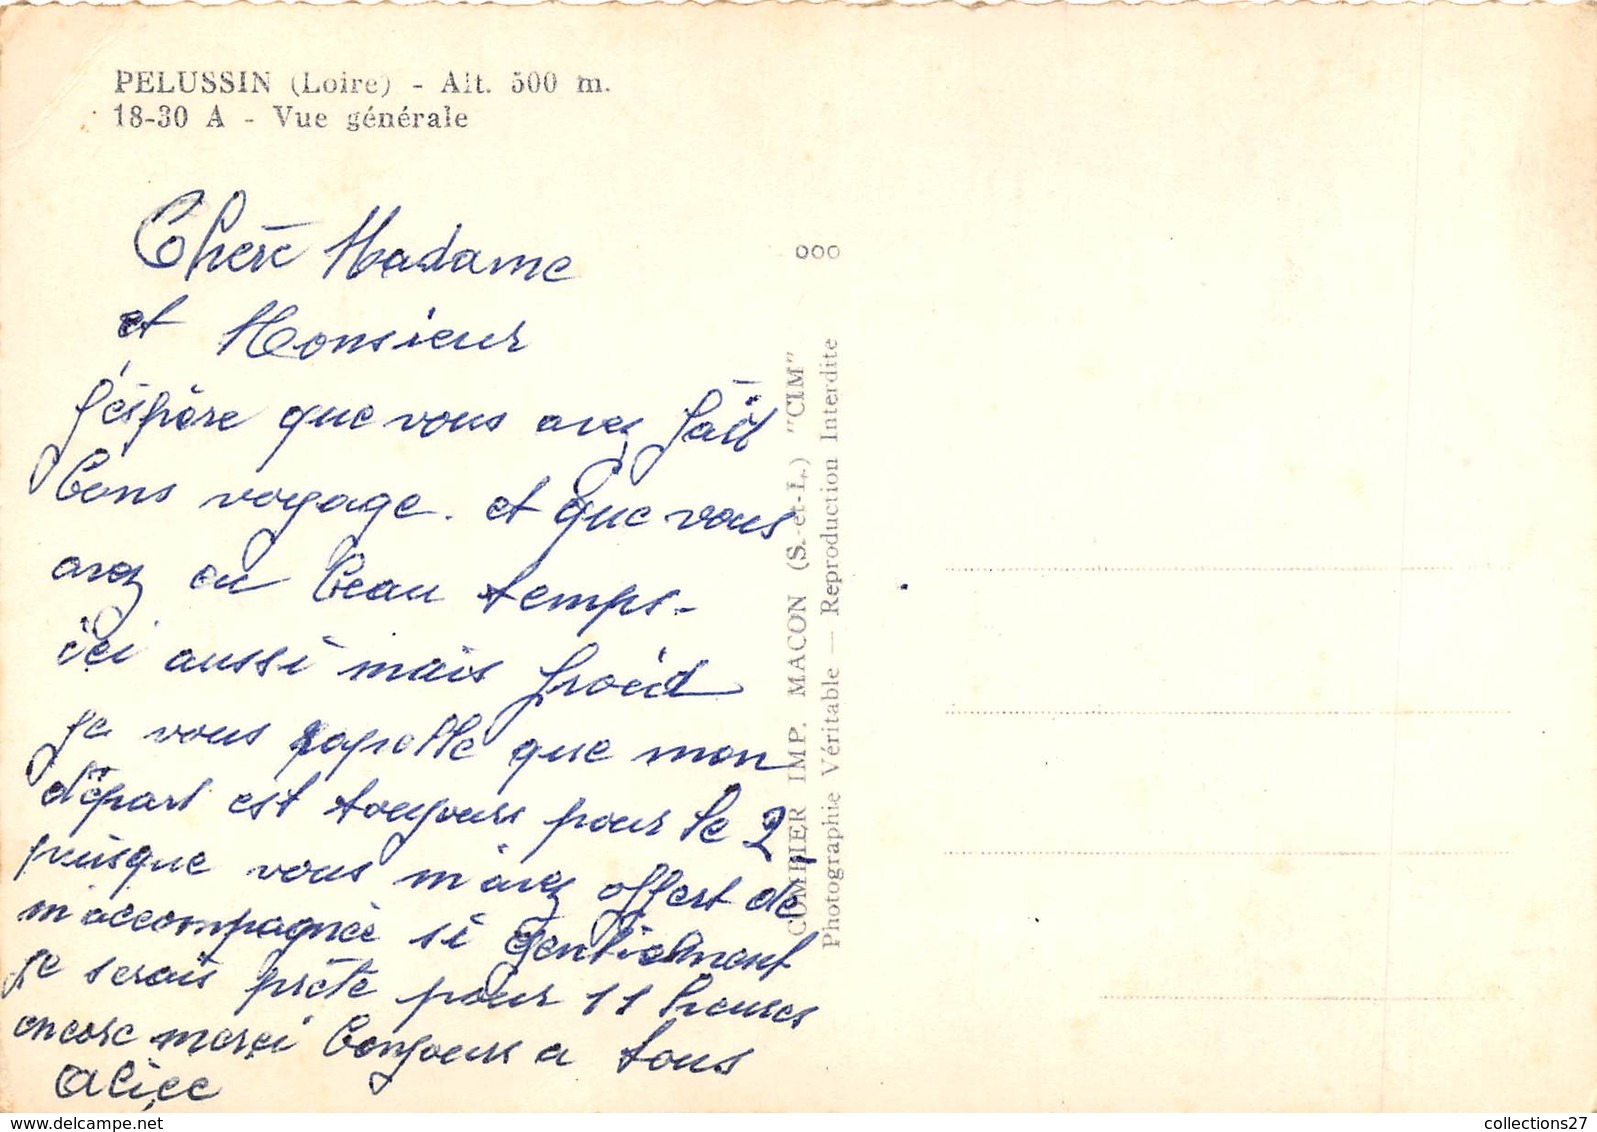 PELUSSIN (Loire) - Alt. 500 m.
18-30 A - Vue générale
Chère Madame
et Monsieur
j'éspère que vous avez fait
bons voyage. et que vous
avez eu beau temps-
ici aussi mais froid
je vous rapelle que mon
départ est toujours pour le 2
puisque vous m'avez offert de
m'accompagnée si gentiement
je serais prête pour 11 heures
encore merci bonjours a tous
Alice
COMBIER IMP. MACON (S.-et-L.) "CIM"
Photographie Véritable — Reproduction Interdite
collections27